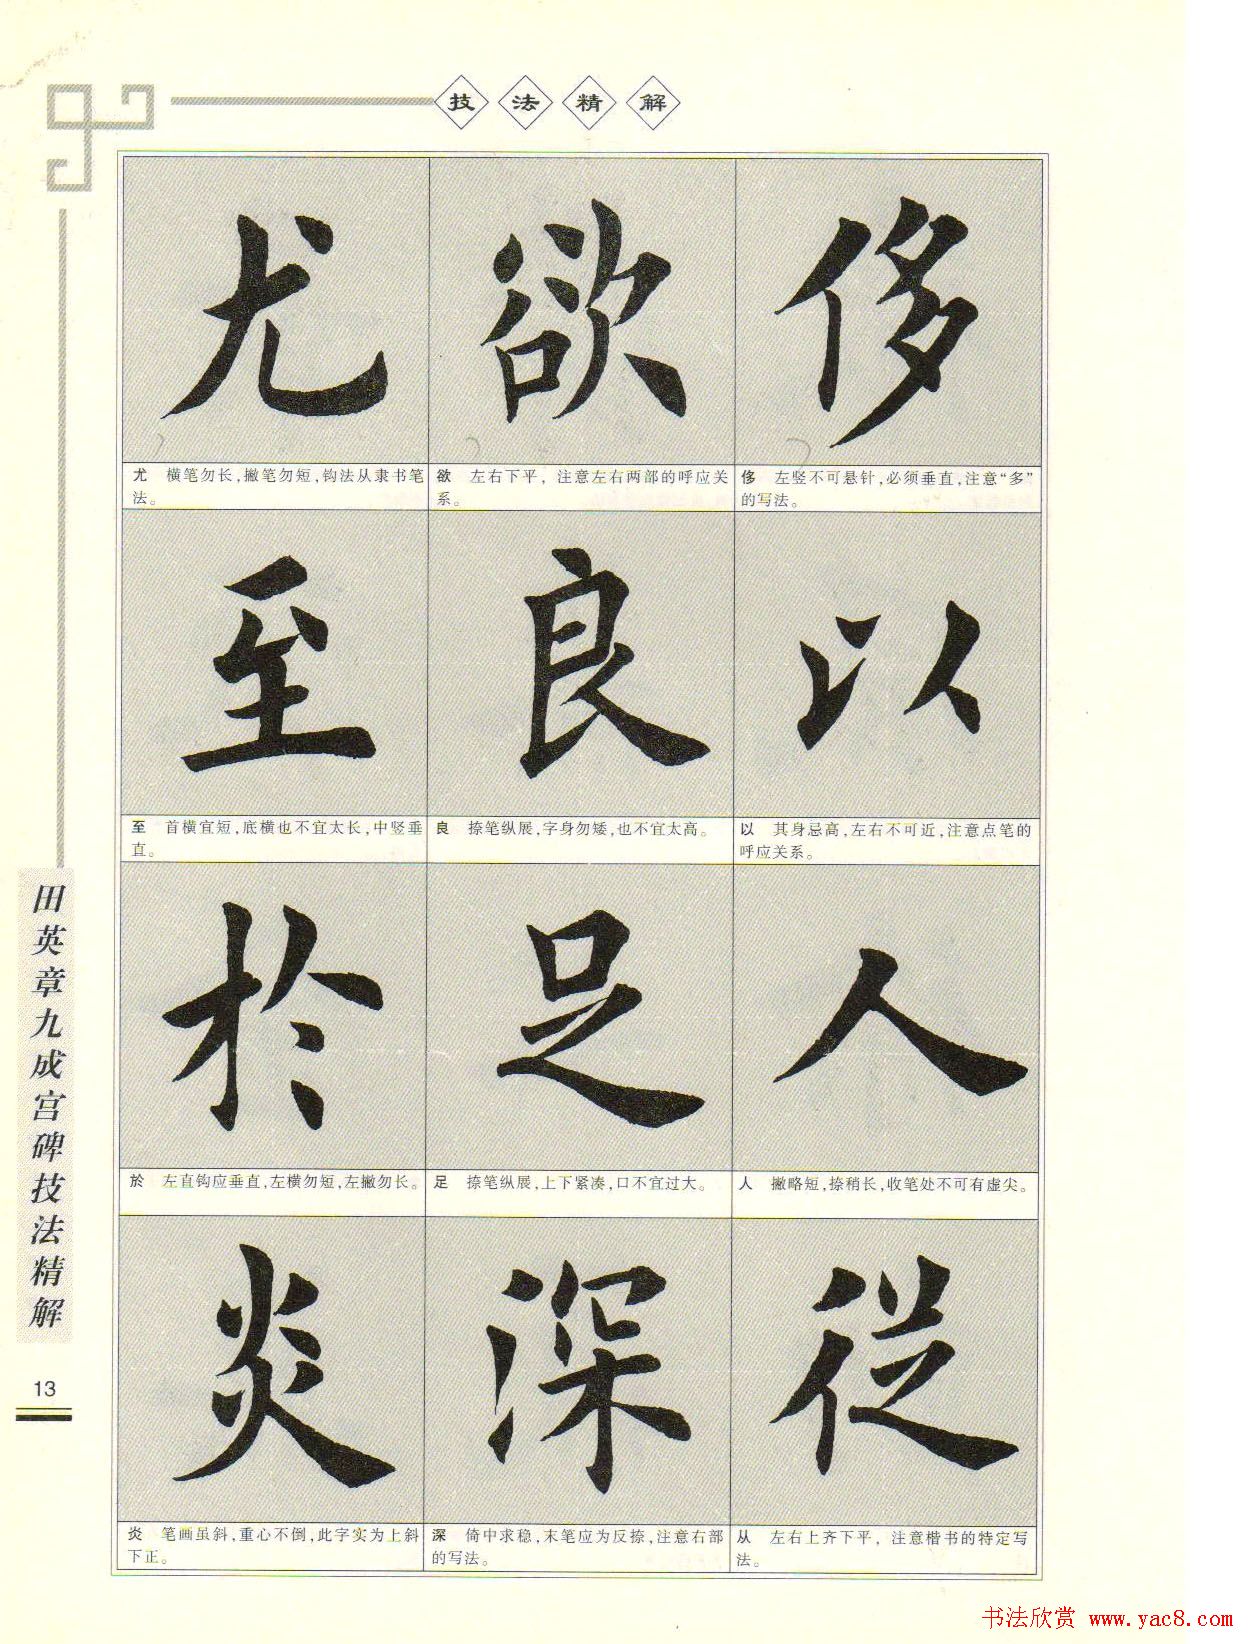 技法精解
尤 欲 侈
尤 横笔勿长,撇笔勿短,钩法从隶书笔
法。
欲 左右下平, 注意左右两部的呼应关
系。
侈 左竖不可悬针,必须垂直,注意“多”
的写法。
至 良 以
至 首横宜短,底横也不宜太长,中竖垂
直。
良 捺笔纵展,字身勿矮,也不宜太高。
以 其身忌高,左右不可近,注意点笔的
呼应关系。
於 足 人
於 左直钩应垂直,左横勿短,左撇勿长。
足 捺笔纵展,上下紧凑,口不宜过大。
人 撇略短,捺稍长,收笔处不可有虚尖。
炎 深 從
炎 笔画虽斜,重心不倒,此字实为上斜
下正。
深 倚中求稳,末笔应为反捺,注意右部
的写法。
从 左右上齐下平, 注意楷书的特定写
法。
田英章九成宫碑技法精解
13
书法欣赏 www.yac8.com